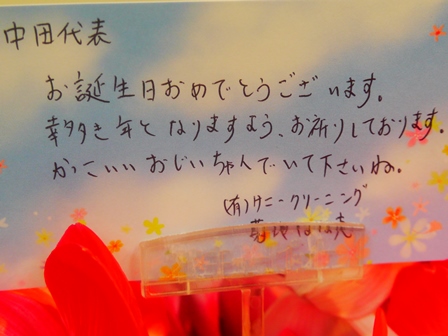 中田代表
お誕生日おめでとうございます。
幸多き年となりますよう、お祈りしております。
かっこいいおじいちゃんでいて下さいね。
(有)サニークリーニング